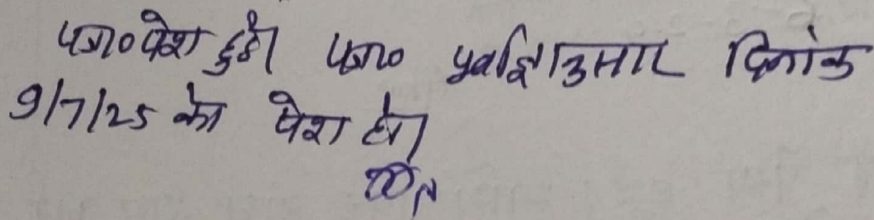 पत्रा० पेश हुई। पत्रा० पूर्वाज्ञानुसार दिनांक
9/7/25 को पेश हो।